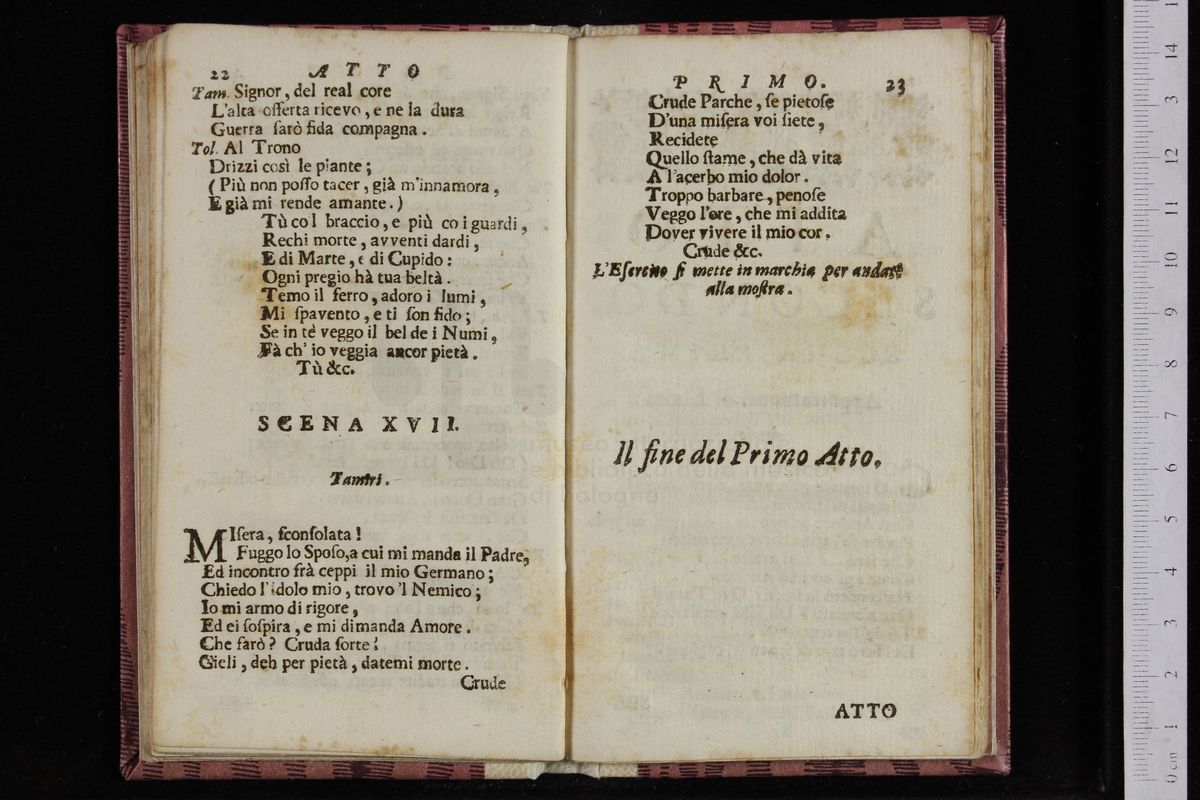 22 ATTO
Tam. Signor, del real core
L'alta offerta ricevo, e ne la dura
Guerra sarò fida compagna.
Tol. Al Trono
Drizzi così le piante;
(Più non posso tacer, già m'innamora,
E già mi rende amante.)
Tù col braccio, e più co i guardi,
Rechi morte, avventi dardi,
E di Marte, e di Cupido:
Ogni pregio hà tua beltà.
Temo il ferro, adoro i lumi,
Mi spavento, e ti son fido;
Se in tè veggo il bel de i Numi,
Fà ch' io veggia ancor pietà.
Tù &c.
SCENA XVII.
Tamiri.
MIsera, sconsolata!
Fuggo lo Sposo, a cui mi manda il Padre,
Ed incontro frà ceppi il mio Germano;
Chiedo l'idolo mio, trovo 'l Nemico;
Io mi armo di rigore,
Ed ei sospira, e mi dimanda Amore.
Che farò? Cruda sorte!
Cieli, deh per pietà, datemi morte.
Crude
PRIMO. 23
Crude Parche, se pietose
D'una misera voi siete,
Recidete
Quello stame, che dà vita
A l'acerbo mio dolor.
Troppo barbare, penose
Veggo l'ore, che mi addita
Dover vivere il mio cor.
Crude &c.
L'Esercito si mette in marchia per andare
alla mostra.
Il fine del Primo Atto.
ATTO
museo
e biblio
di bologna
0 cm 1 2 3 4 5 6 7 8 9 10 11 12 3 14